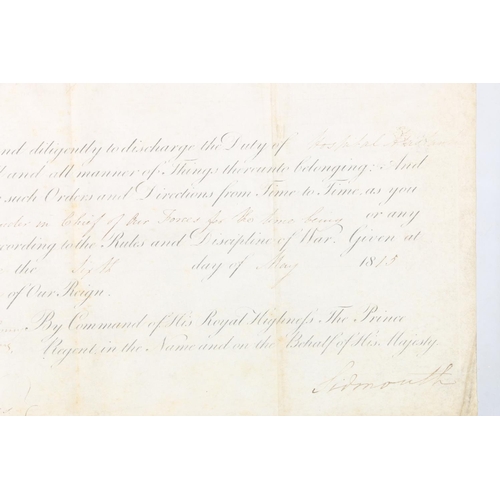 and diligently to discharge the Duty of Hospital
and all manner of Things thereunto belonging; And
such Orders and Directions from Time to Time, as you
in Chief of Our Forces for the time being or any
according to the Rules and Discipline of War. Given at
the Sixth day of May 1815
of Our Reign.
By Command of His Royal Highness The Prince
Regent, in the Name and on the Behalf of His Majesty.
Sidmouth